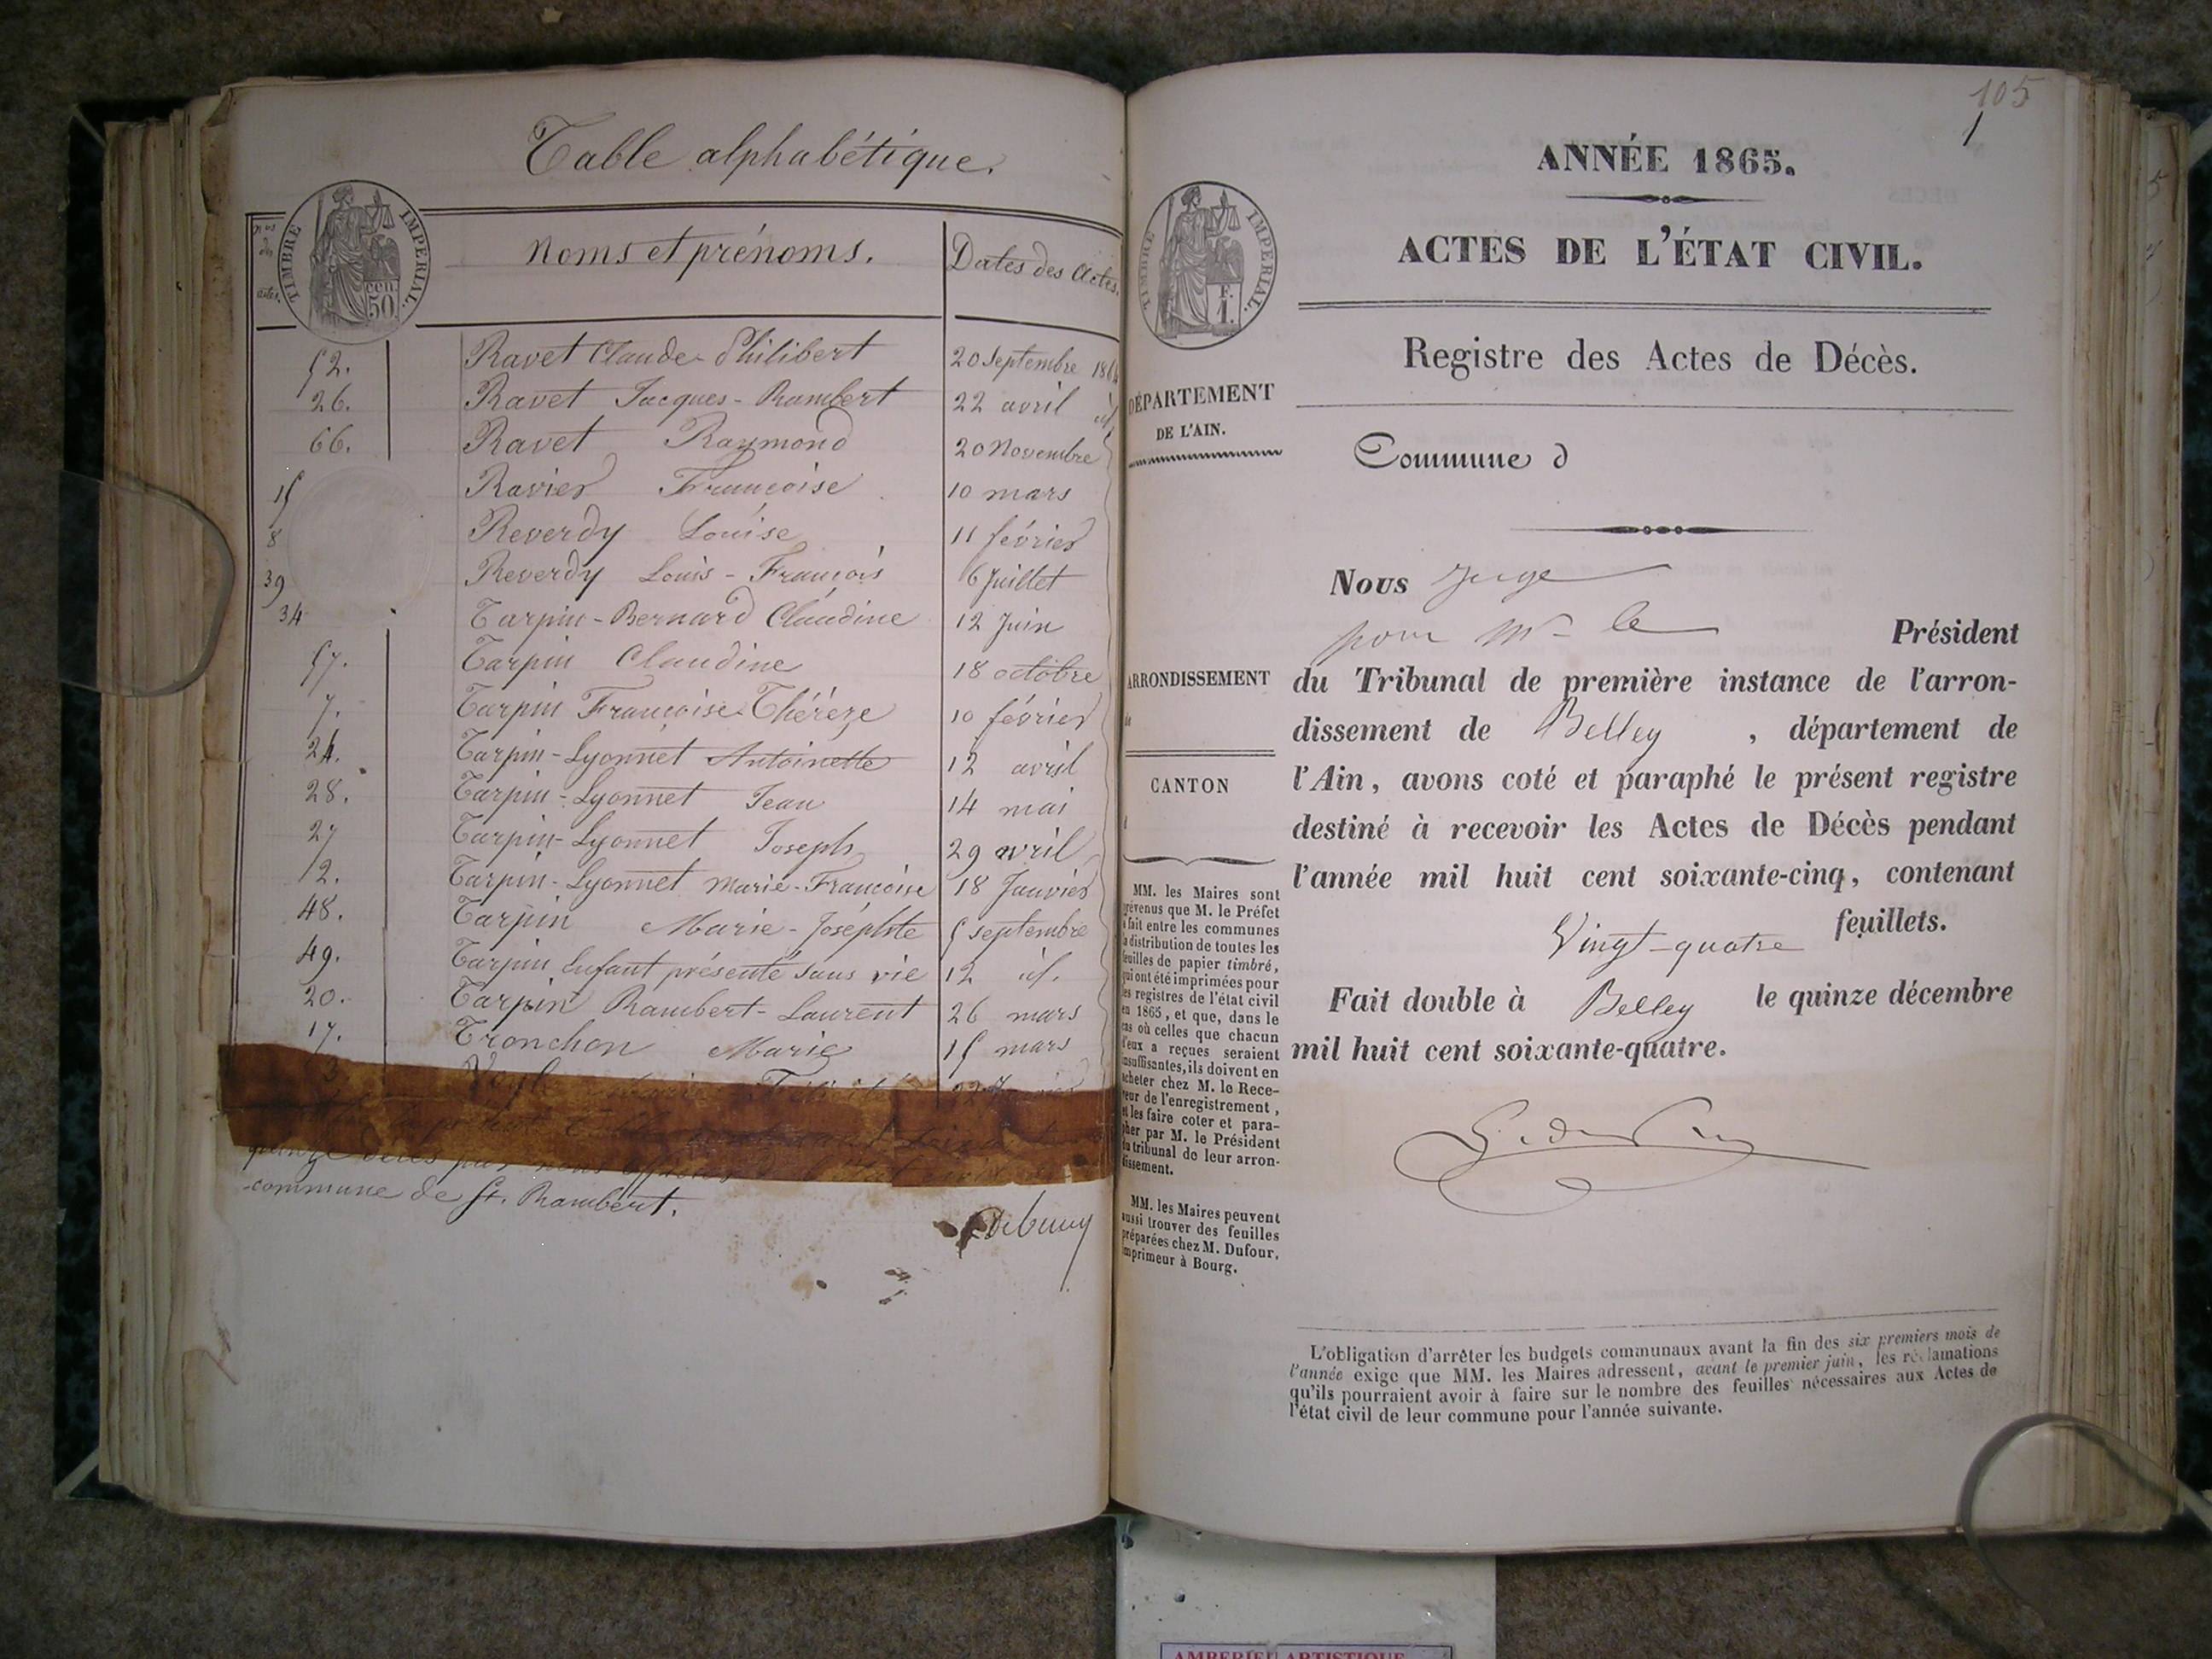 Table alphabétique.
Nos des actes. Noms et prénoms. Dates des Actes.
TIMBRE IMPÉRIAL. cen. 50
52. Ravet Claude-Philibert 20 Septembre
26. Ravet Jacques-Rambert 22 avril id.
66. Ravet Raymond 20 Novembre
15 Ravier Françoise 10 mars
8 Reverdy Louise 11 février
39 Reverdy Louis-François 6 Juillet
34 Tarpin-Bernard Claudine 12 Juin
57. Tarpin Claudine 18 octobre
7. Tarpin Françoise-Thérèze 10 février
24. Tarpin-Lyonnet Antoinette 12 avril
28. Tarpin-Lyonnet Jean 14 mai
27 Tarpin-Lyonnet Joseph 29 avril
2. Tarpin-Lyonnet Marie-Françoise 18 Janvier
48. Tarpin Marie-Joséphte 5 septembre
49. Tarpin Enfant présenté sans vie 12 id.
20. Tarpin Rambert-Laurent 26 mars
17. Tronchon Marie 15 mars
3.
commune de St. Rambert.
105
1
ANNÉE 1865.
ACTES DE L'ÉTAT CIVIL.
Registre des Actes de Décès.
TIMBRE IMPÉRIAL. F. 1.
DÉPARTEMENT
DE L'AIN.
Commune d
ARRONDISSEMENT
de
CANTON
d
Nous Juge
pour Mr le Président
du Tribunal de première instance de l'arron-
dissement de Belley , département de
l'Ain, avons coté et paraphé le présent registre
destiné à recevoir les Actes de Décès pendant
l'année mil huit cent soixante-cinq, contenant
Vingt-quatre feuillets.
Fait double à Belley le quinze décembre
mil huit cent soixante-quatre.
MM. les Maires sont
prévenus que M. le Préfet
a fait entre les communes
la distribution de toutes les
feuilles de papier timbré,
qui ont été imprimées pour
les registres de l'état civil
en 1865, et que, dans le
cas où celles que chacun
d'eux a reçues seraient
insuffisantes, ils doivent en
acheter chez M. le Rece-
veur de l'enregistrement,
et les faire coter et para-
pher par M. le Président
du tribunal de leur arron-
dissement.
MM. les Maires peuvent
aussi trouver des feuilles
préparées chez M. Dufour,
imprimeur à Bourg.
L'obligation d'arrêter les budgets communaux avant la fin des six premiers mois de
l'année exige que MM. les Maires adressent, avant le premier juin, les réclamations
qu'ils pourraient avoir à faire sur le nombre des feuilles nécessaires aux Actes de
l'état civil de leur commune pour l'année suivante.
AMBERIEU ARTISTIQUE